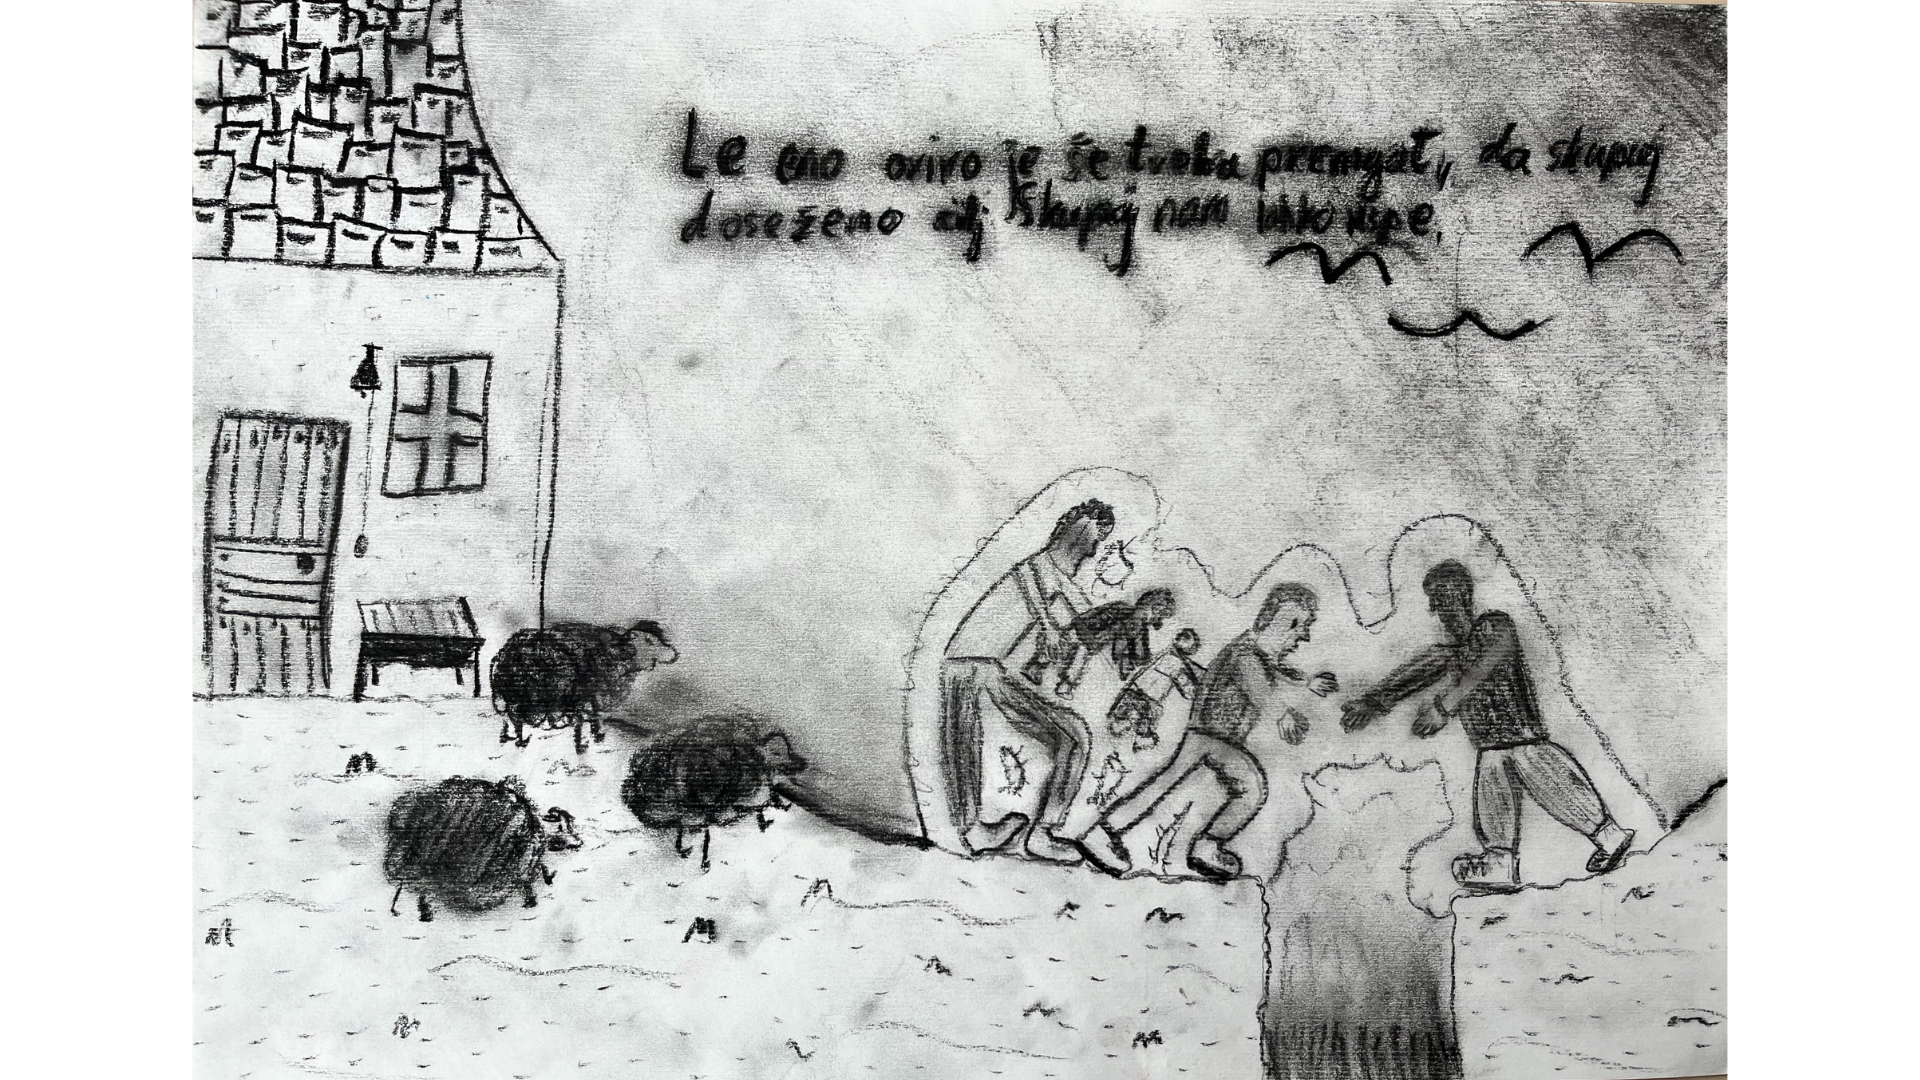 Le eno oviro je še treba premagat, da skupaj
dosežemo cilj Skupaj nam lahko uspe.